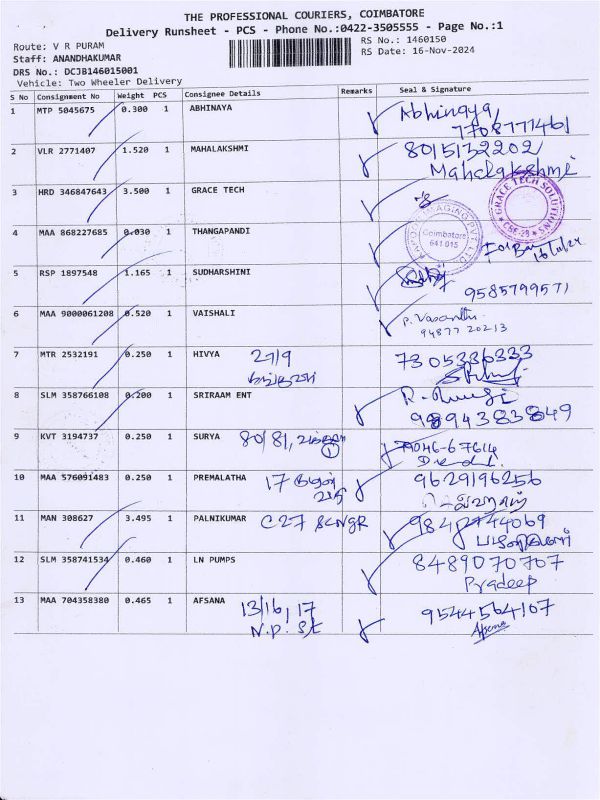 THE PROFESSIONAL COURIERS, COIMBATORE
Delivery Runsheet - PCS - Phone No.:0422-3505555 - Page No.:1
Route: V R PURAM
RS No.: 1460150
Staff: ANANDHAKUMAR
RS Date: 16-Nov-2024
DRS No.: DCJB146015001
Vehicle: Two Wheeler Delivery
S No Consignment No Weight PCS Consignee Details Remarks Seal & Signature
1 MTP 5045675 0.300 1 ABHINAYA Abhinaya,
7708771461
2 VLR 2771407 1.520 1 MAHALAKSHMI 8015132202
Mahalakshmi
3 HRD 346847643 3.500 1 GRACE TECH
GRACE TECH SOLUTIONS
4 MAA 868227685 0.030 1 THANGAPANDI
Coimbatore
641 015
5 RSP 1897548 1.165 1 SUDHARSHINI
9585799571
6 MAA 9000061208 0.520 1 VAISHALI P. Vasanthi
94877 20213
7 MTR 2532191 0.250 1 HIVYA 27/9 7305336333
8 SLM 358766108 0.200 1 SRIRAAM ENT
9894383849
9 KVT 3194737 0.250 1 SURYA 80/81, 79046-67614
10 MAA 576091483 0.250 1 PREMALATHA 17 9629196256
11 MAN 308627 3.495 1 PALNIKUMAR C27
12 SLM 358741534 0.460 1 LN PUMPS 8489070707
Pradeep
13 MAA 704358380 0.465 1 AFSANA 13/16, 17 9544564107
N.P. St Afsana